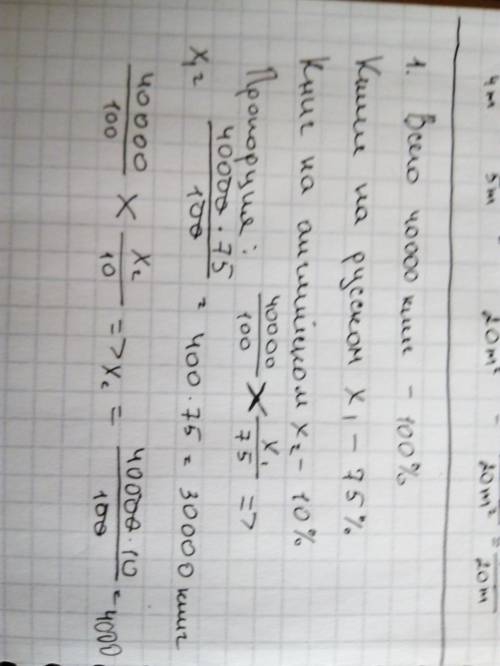 4m 5m 20m² - 20m² = 
20m 20m
1. Всего 40000 книг - 100%
Книги на русском x₁ - 75%
Книг на английском x₂ - 10%
Пропорция: 40000/100 X x₁/75 =>
x₁ = 40000·75/100 = 400·75 = 30000 книг
40000/100 X x₂/10 => x₂ = 40000·10/100 = 4000